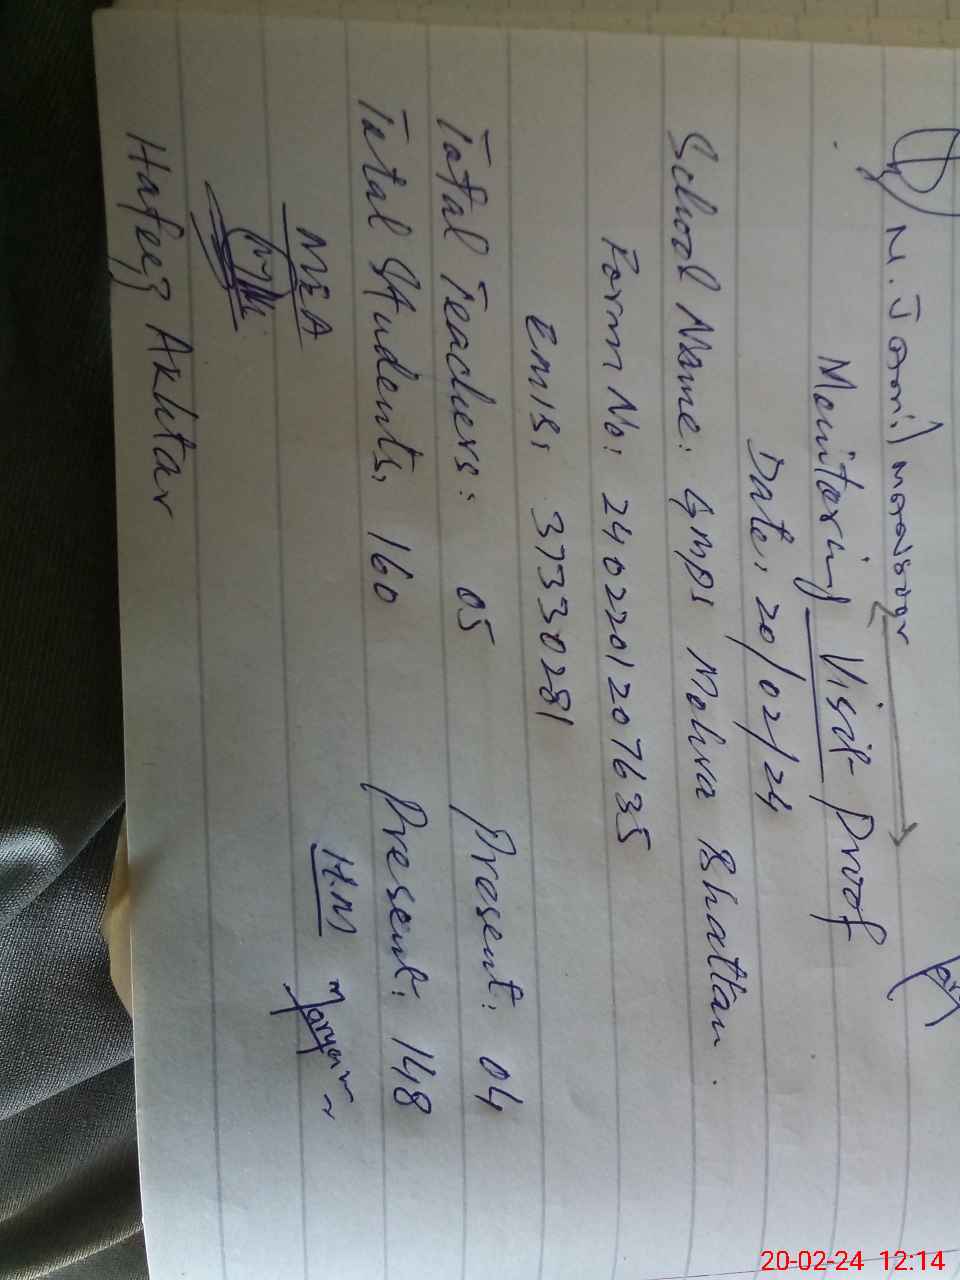 N. Jamil
Monitoring Visit Proof
Date: 20/02/24
School Name: GMPS Mohra Bhattan.
Form No: 2402201207635
EMIS: 37330281
Total Teachers: 05 Present: 04
Total Students: 160 Present: 148
MEA H.M
Maryam
Hafeez Akhtar
20-02-24 12:14